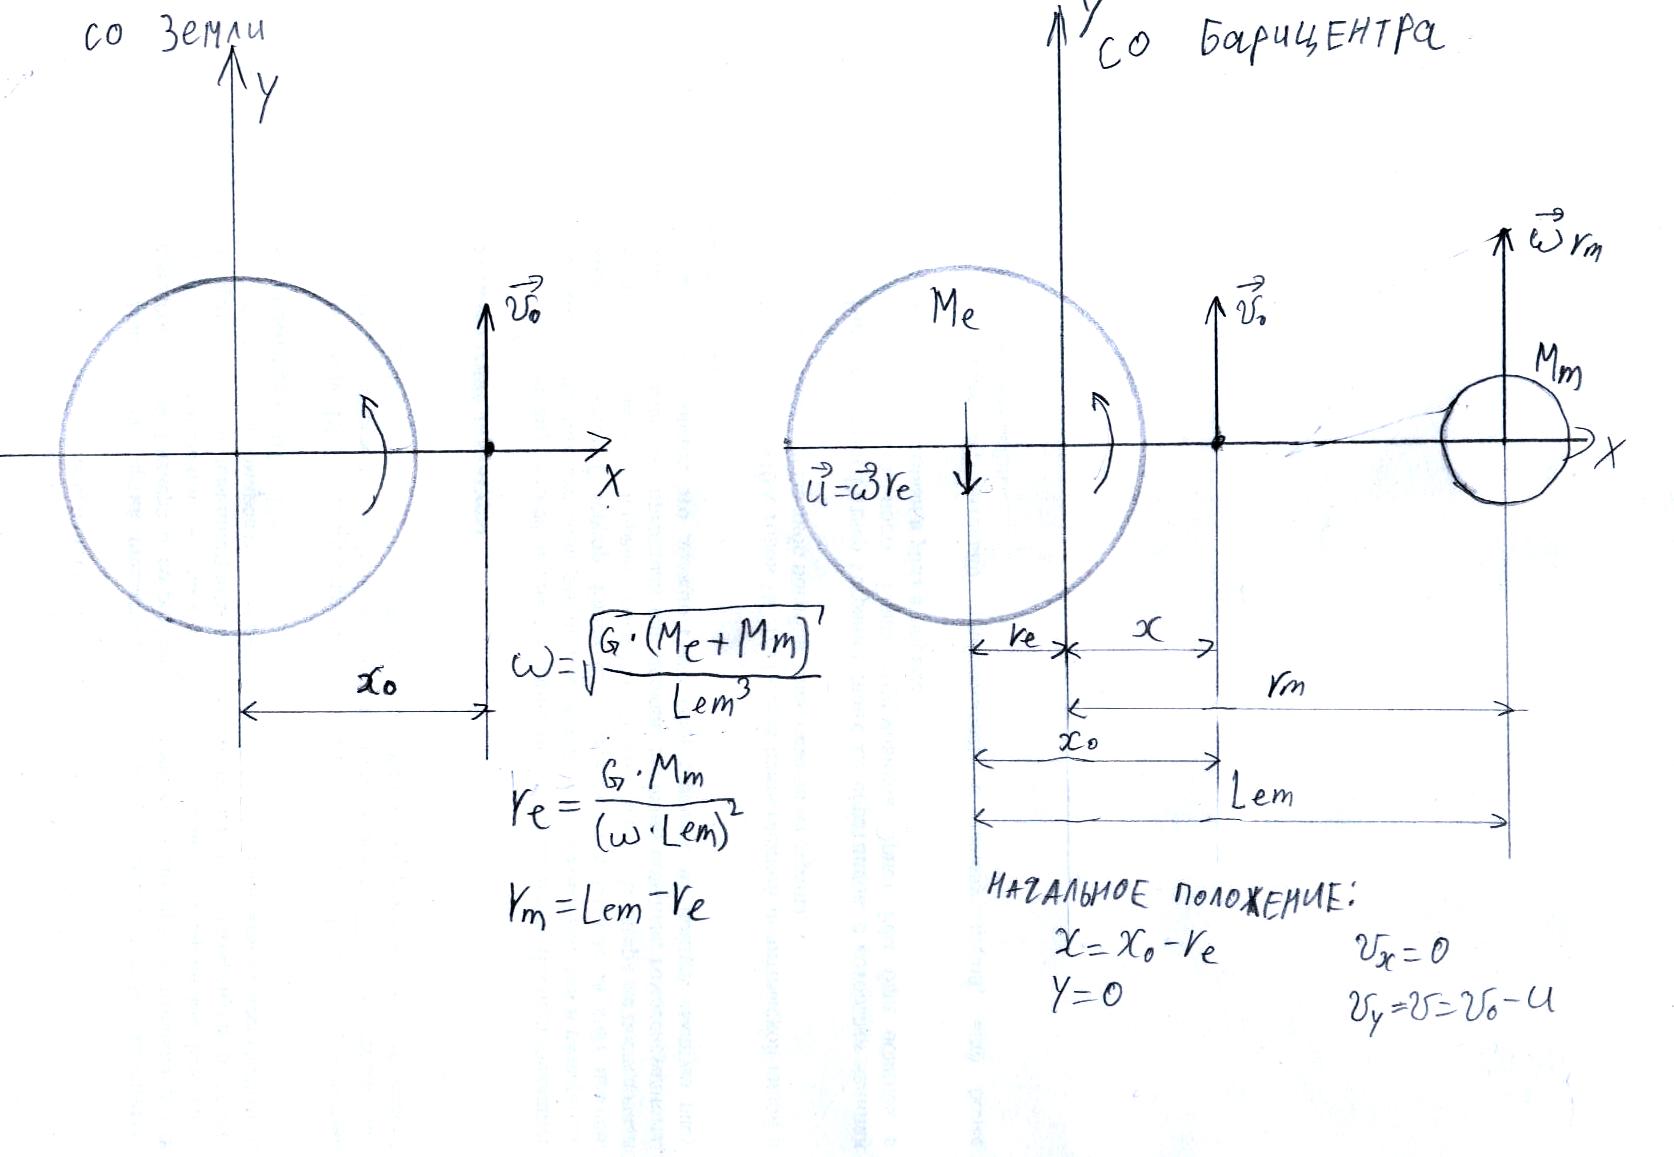 СО Земли
Y
v₀
X
x₀
ω=√(G·(Me+Mm)/Lem³)
re = G·Mm/(ω·Lem)²
rm=Lem-re
Y
СО БАРИЦЕНТРА
Me
v₀
ωrm
Mm
u=ωre
X
re
x
rm
x₀
Lem
НАЧАЛЬНОЕ ПОЛОЖЕНИЕ:
x=x₀-re
vx=0
Y=0
vy=v=v₀-u